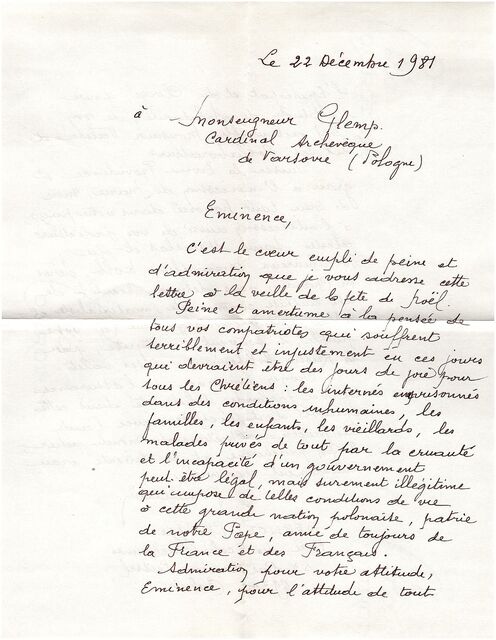 Le 22 Décembre 1981
à Monseigneur Glemp.
Cardinal Archevêque
de Varsovie (Pologne)
Eminence,
C'est le cœur empli de peine et
d'admiration que je vous adresse cette
lettre à la veille de la fête de Noël.
Peine et amertume à la pensée de
tous vos compatriotes qui souffrent
terriblement et injustement en ces jours
qui devraient être des jours de joie pour
tous les Chrétiens : les internés emprisonnés
dans des conditions inhumaines, les
familles, les enfants, les vieillards, les
malades privés de tout par la cruauté
et l'incapacité d'un gouvernement
peut être légal, mais surement illégitime
qui impose de telles conditions de vie
à cette grande nation polonaise, patrie
de notre Pape, amie de toujours de
la France et des Français.
Admiration pour votre attitude,
Eminence, pour l'attitude de tout